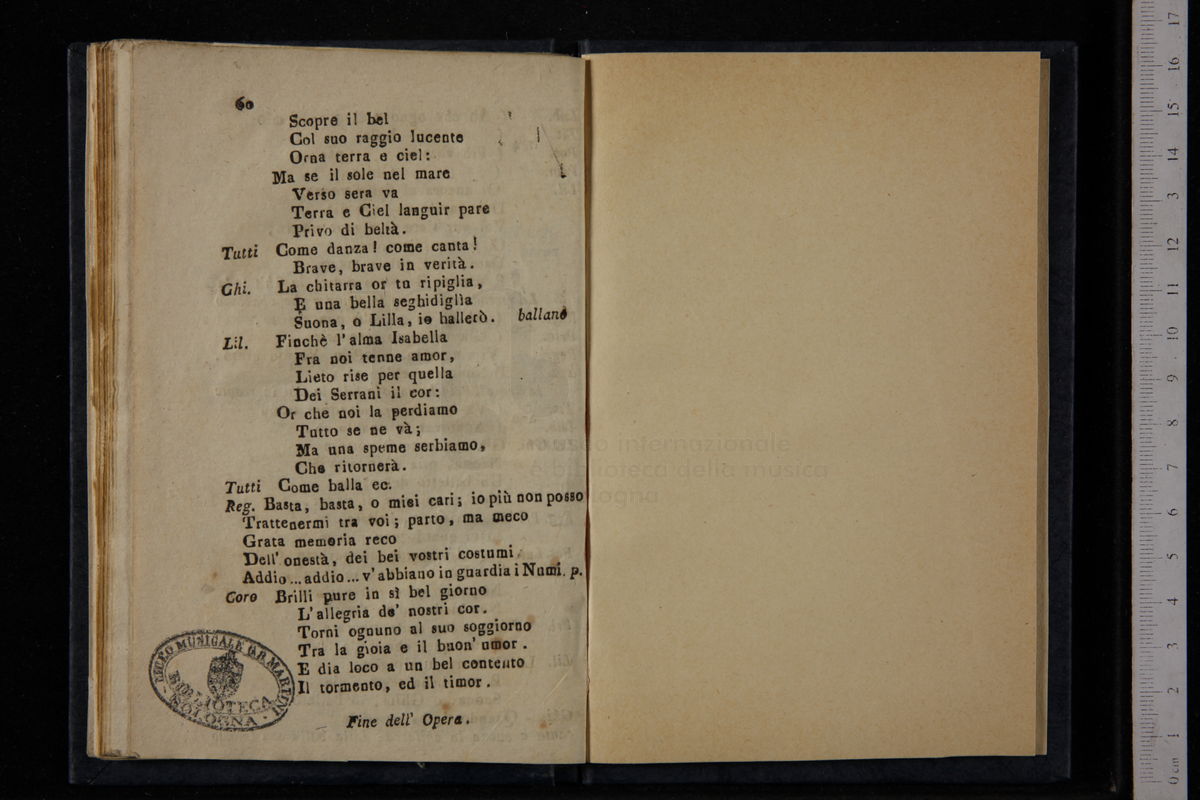 60
Scopre il bel
Col suo raggio lucente
Orna terra e ciel:
Ma se il sole nel mare
Verso sera va
Terra e Ciel languir pare
Privo di beltà.
Tutti Come danza! come canta!
Brave, brave in verità.
Ghi. La chitarra or tu ripiglia,
E una bella seghidiglia
Suona, o Lilla, io ballerò. ballano
Lil. Finchè l'alma Isabella
Fra noi tenne amor,
Lieto rise per quella
Dei Serrani il cor:
Or che noi la perdiamo
Tutto se ne và;
Ma una speme serbiamo,
Che ritornerà.
Tutti Come balla ec.
Reg. Basta, basta, o miei cari; io più non posso
Trattenermi tra voi; parto, ma meco
Grata memoria reco
Dell' onestà, dei bei vostri costumi.
Addio... addio... v'abbiano in guardia i Numi. p.
Coro Brilli pure in sì bel giorno
L'allegria de' nostri cor.
Torni ognuno al suo soggiorno
Tra la gioia e il buon' umor.
E dia loco a un bel contento
Il tormento, ed il timor.
Fine dell' Opera.
LICEO MUSICALE G.B. MARTINI
BIBLIOTECA
- BOLOGNA -
museo internazionale
e biblioteca della musica
bologna
0 cm 1 2 3 4 5 6 7 8 9 10 11 12 13 14 15 16 17